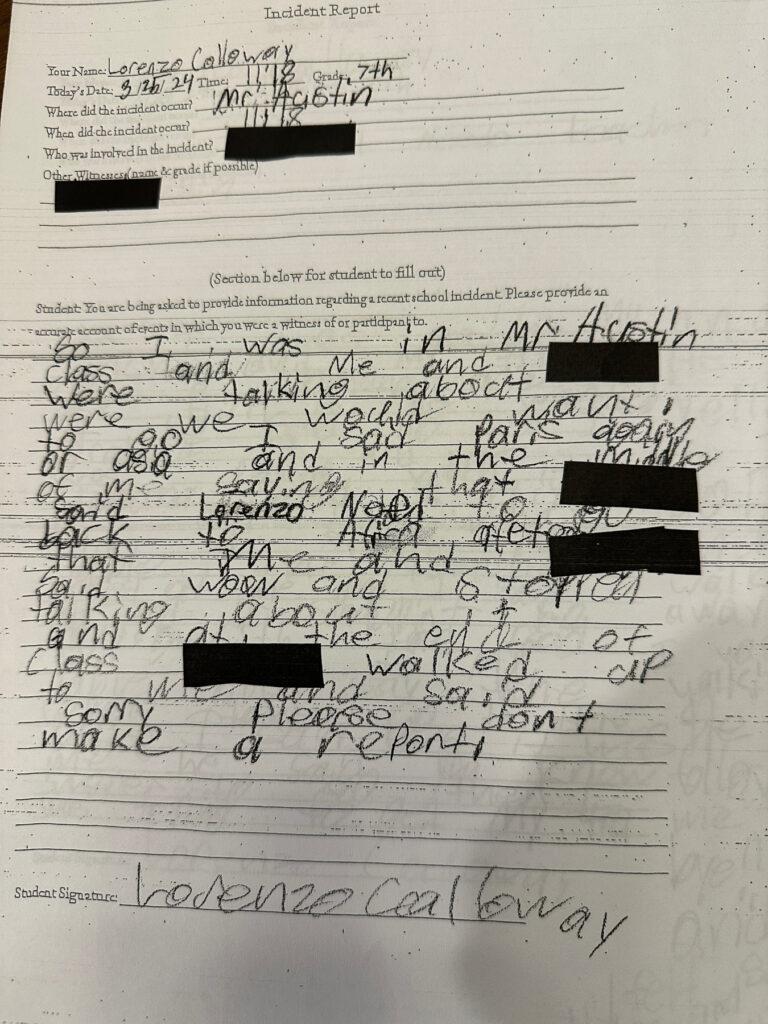 Incident Report
Your Name: Lorenzo Calloway
Today's Date: 3/26/24 Time: 11:18 Grade: 7th
Where did the incident occur? Mr. Austin
When did the incident occur? 11:18
Who was involved in the incident?
Other Witnesses (name & grade if possible)
(Section below for student to fill out)
Student: You are being asked to provide information regarding a recent school incident. Please provide an
accurate account of events in which you were a witness of or participant to.
So I was in Mr. Austin
class and Me and
were talking about
were we would want
to go I sad Paris again
or asa and in the middle
of me saying that
said Lorenzo Need to go
back to
that Me and
said woow and stopped
talking about it
and at the end of
class walked up
to me and said
sorry please don't
make a report.
Student Signature: Lorenzo Calloway